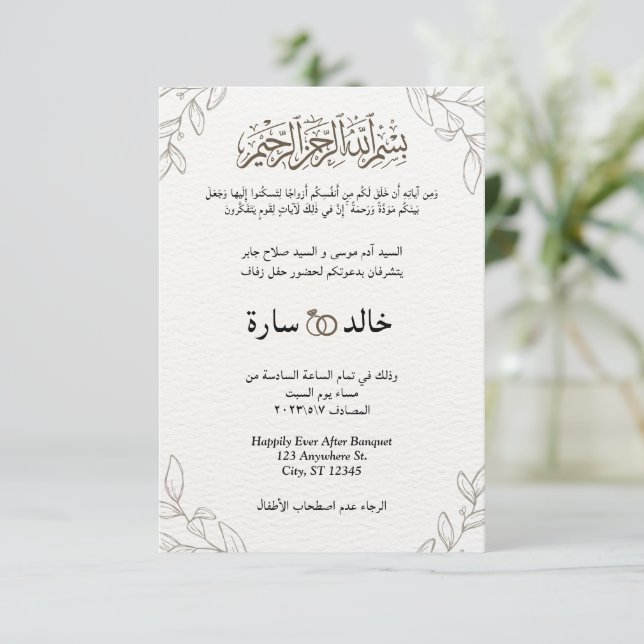 بِسْمِ اللَّهِ الرَّحْمَٰنِ الرَّحِيمِ
وَمِن آيَاتِهِ أَن خَلَقَ لَكُم مِن أَنْفُسِكُم أَزواجًا لِتَسكُنوا إِلَيها وَجَعَلَ
بَينَكُم مَوَدَّةً وَرَحمَةً ۚ إِنَّ في ذَلِكَ لَآيَاتٍ لِقَومٍ يَتَفَكَّرُونَ
السيد آدم موسى و السيد صلاح جابر
يتشرفان بدعوتكم لحضور حفل زفاف
خالد سارة
وذلك في تمام الساعة السادسة من
مساء يوم السبت
المصادف ٧\٥\٢٠٢٣
Happily Ever After Banquet
123 Anywhere St.
City, ST 12345
الرجاء عدم اصطحاب الأطفال